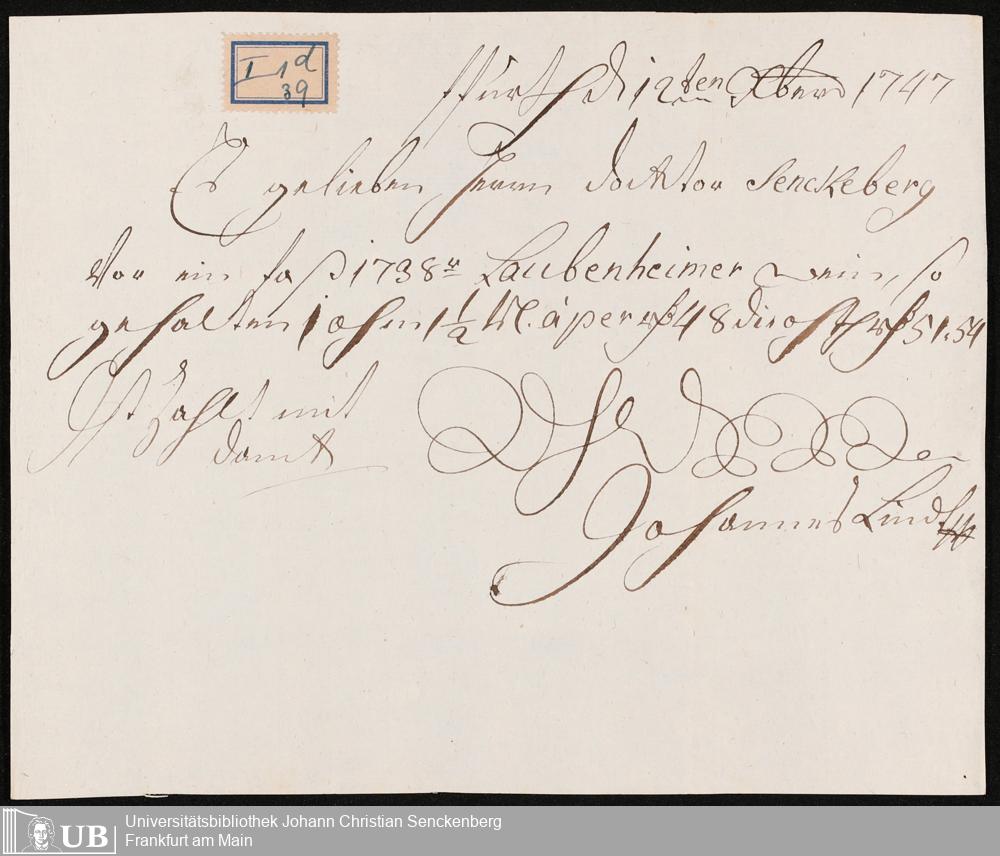 I 1 d
39
ffurth d 12ten Xbers 1747
Es gelieben Herrn docktor Senckeberg
Vor ein faß 1738r Laubenheimer wein, so
gehalten 1 ohm 1½ Vl. à per rf 48 die ohm rf 51.54
Ist Zahlt mit
Danck
Johannes Lind
UB
Universitätsbibliothek Johann Christian Senckenberg
Frankfurt am Main